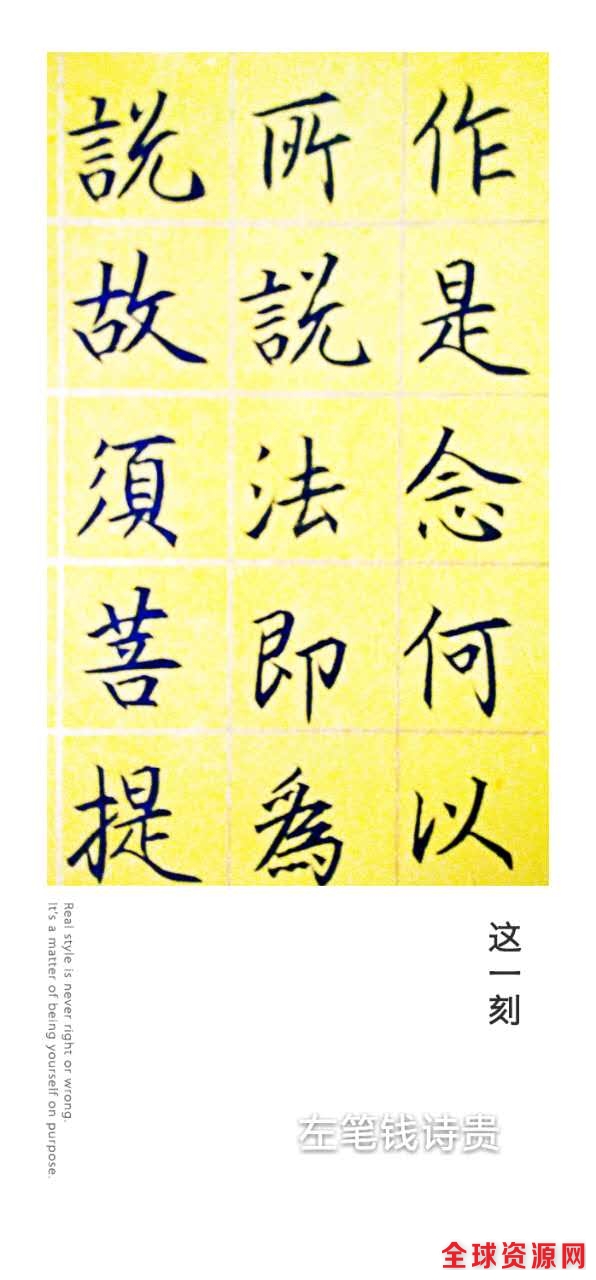 作是念何以
所説法即為
説故須菩提
这一刻
Real style is never right or wrong.
It's a matter of being yourself on purpose.
左笔钱诗贵
全球资源网